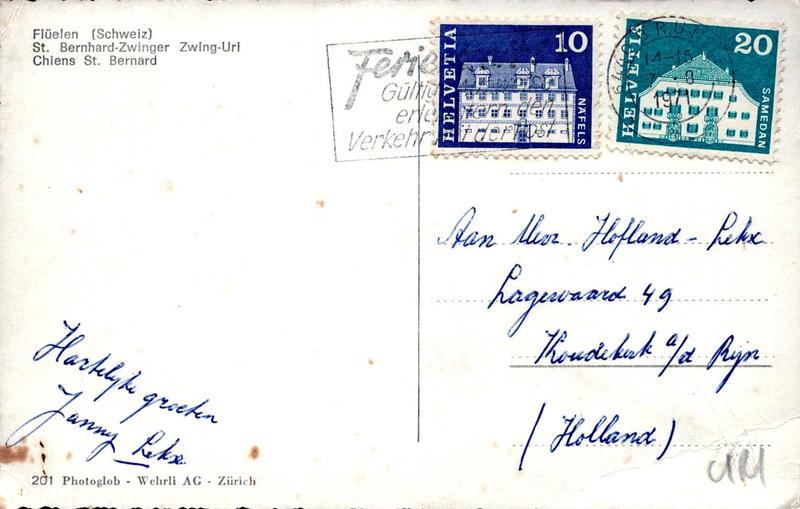 Flüelen (Schweiz)
St. Bernhard-Zwinger Zwing-Uri
Chiens St. Bernard
Ferie
Gültig
den
Verkehr
HELVETIA
10
NÄFELS
HELVETIA
20
SAMEDAN
14-15
1971
Aan Mevr Hofland - Lekx
Lagewaard 49
Koudekerk a/d Rijn
(Holland)
Hartelijke groeten
Janny Lekx
201 Photoglob - Wehrli AG - Zürich